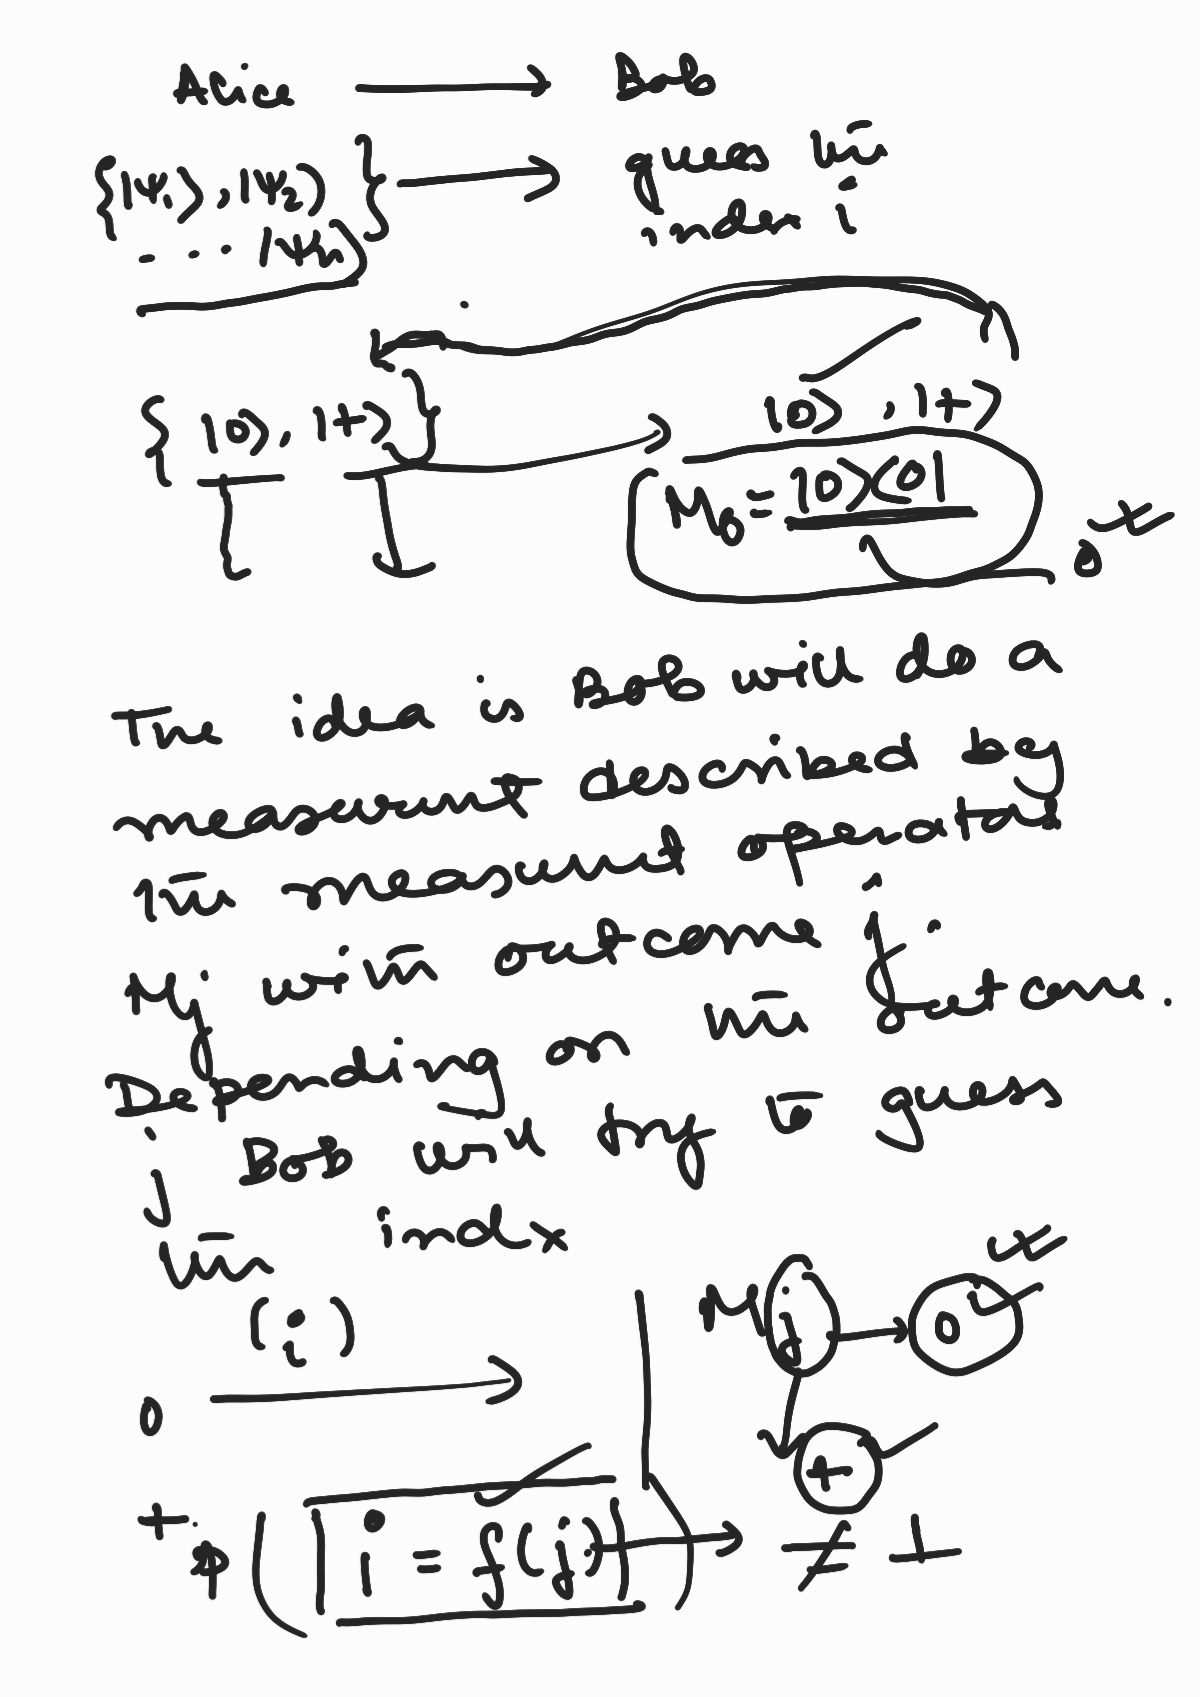 Alice → Bob
{|ψ₁⟩, |ψ₂⟩ } → guess the
... |ψₙ⟩ index i
{ |0⟩, |+⟩ } → |0⟩, |+⟩
M₀ = |0⟩⟨0|
0
The idea is Bob will do a
measurement described by
the measurement operators
Mj with outcome j.
Depending on the outcome.
j Bob will try to guess
the index
(i)
Mj → 0
0 →
+
+
P( | i = f(j) | ) → ≠ 1